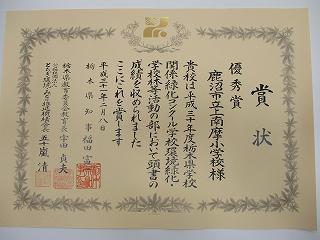 賞状
優秀賞
鹿沼市立上南摩小学校様
貴校は平成三十年度栃木県学校
関係緑化コンクール学校環境緑化・
学校林等活動の部において頭書の
成績を収められました
ここにこれを賞します
平成三十一年二月八日
栃木県知事 福田富一
栃木県教育委員会教育長 宇田貞夫
五十嵐清